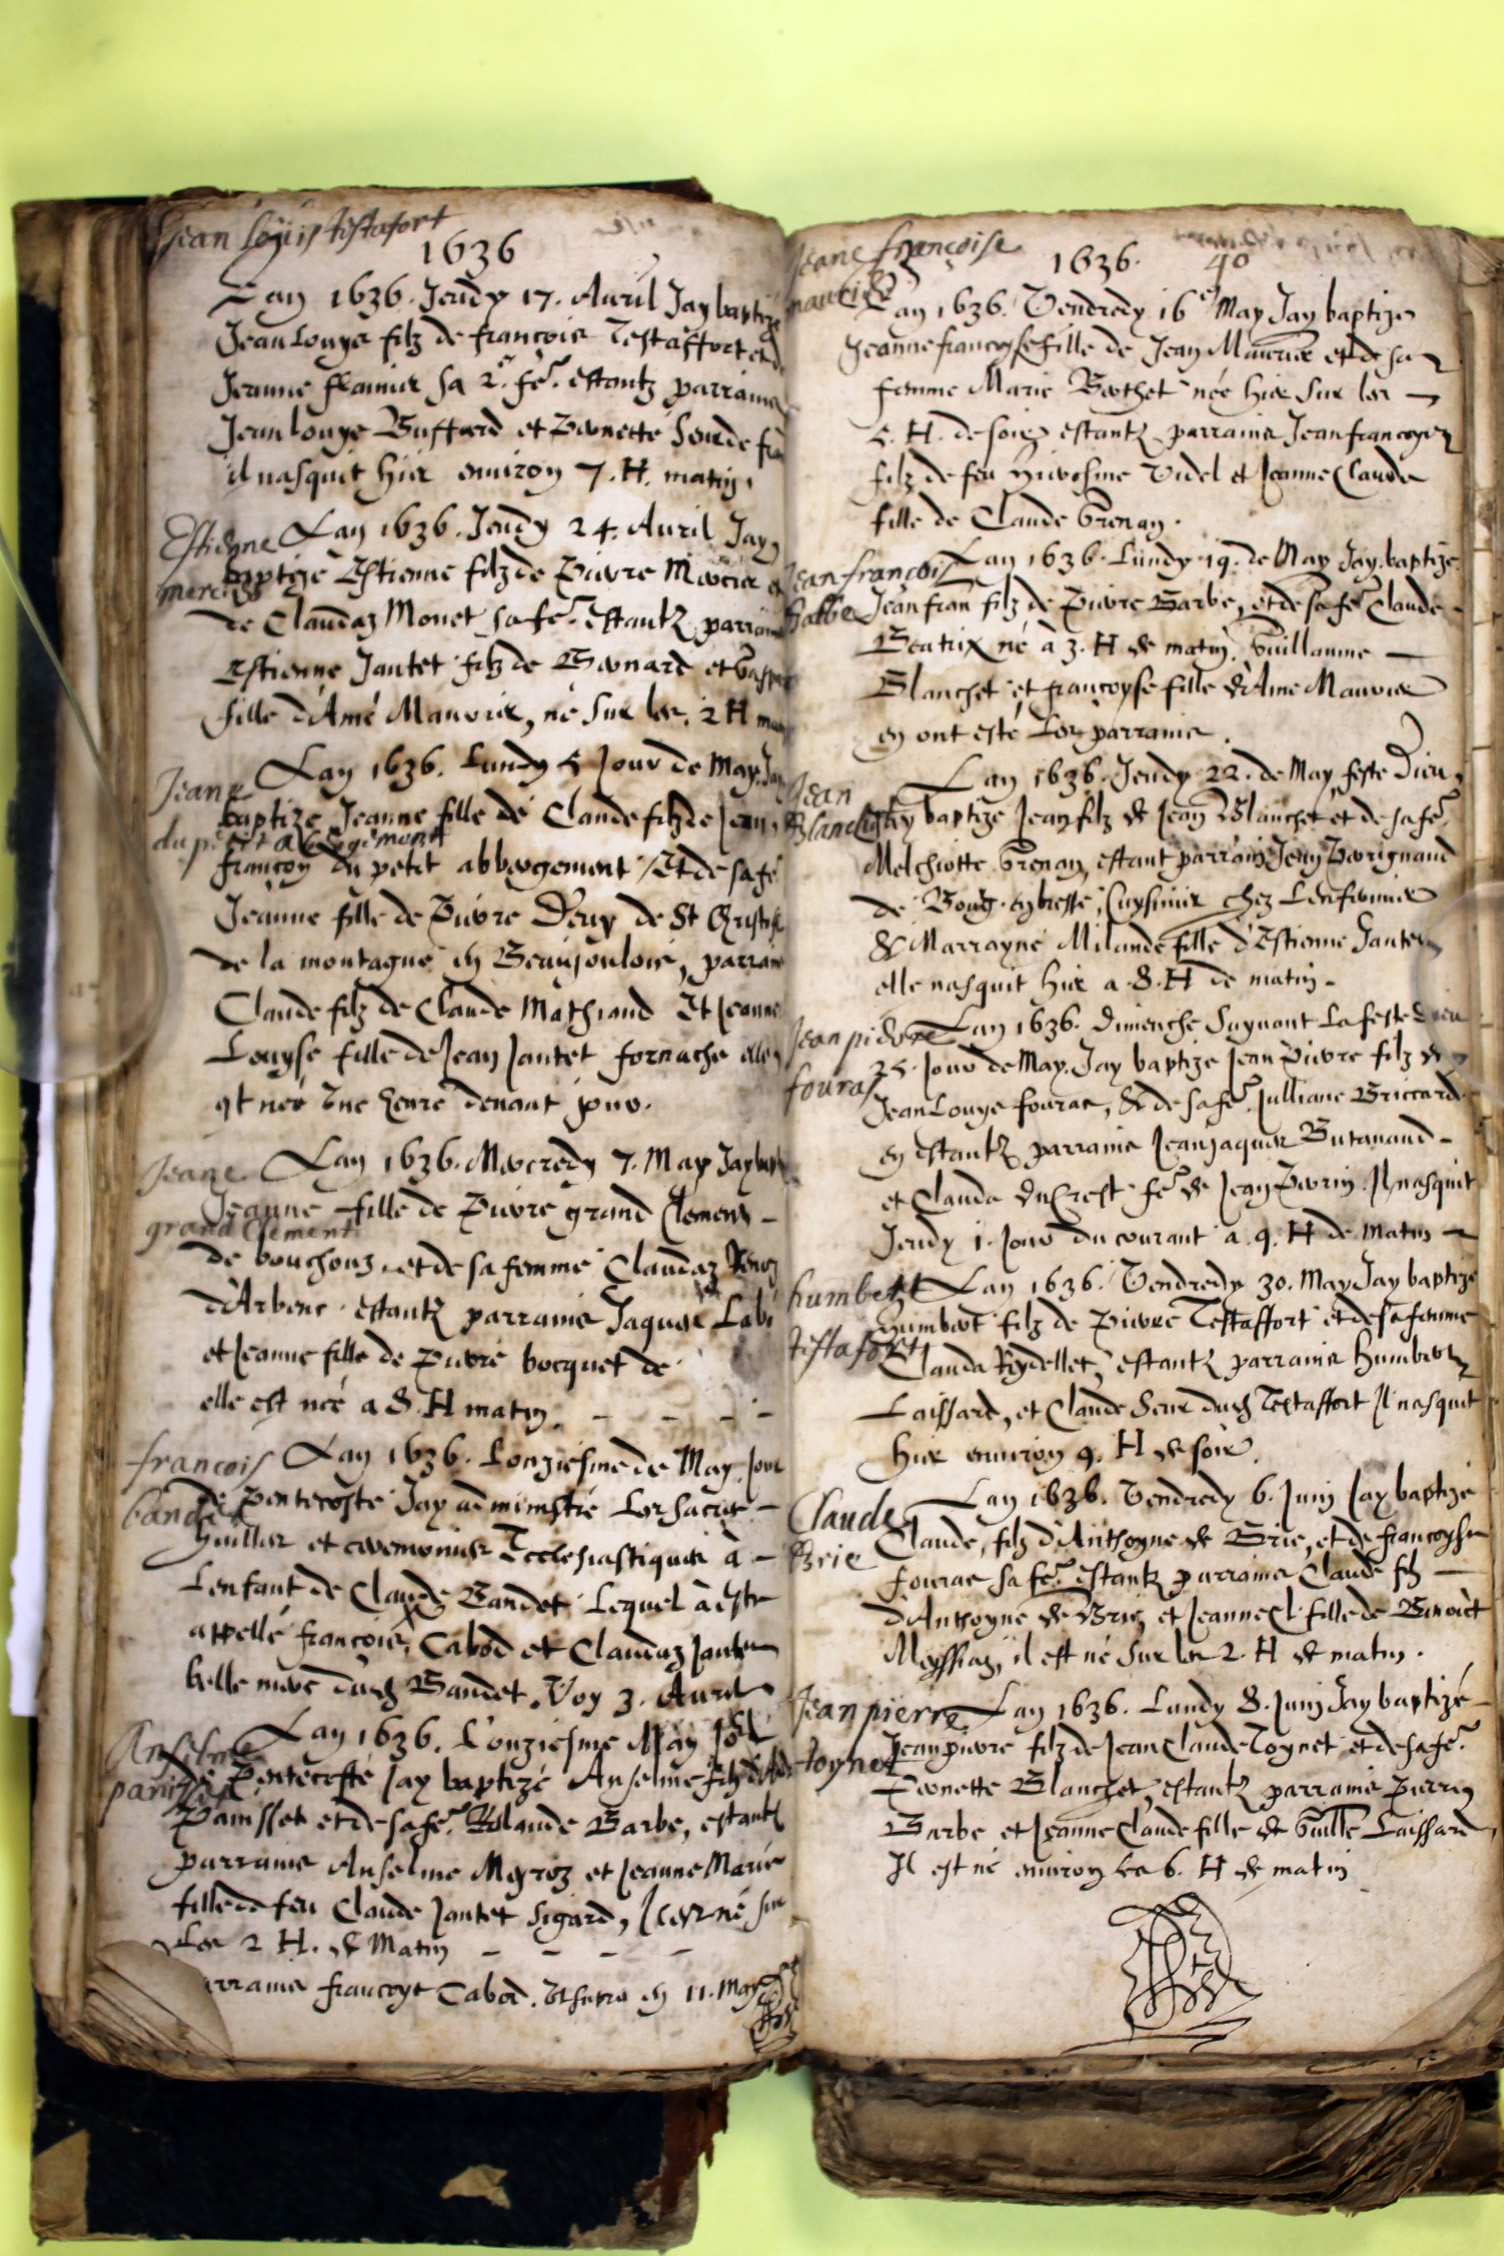 Jean Louis testafort
1636
Lan 1636. Jeudy 17. Auril Jay baptize
Jean Louys filz de francois Testaffort et de
Jeanne sa 2.e fe. estantz parrains
Jean louys Buffard et Pernette Seur de
il nasquit hier enuiron 7. H. matin.
Estienne
mercier
Lan 1636. Jeudy 24. Auril Jay
baptize Estienne filz de Pierre Mercier et
de Claudaz Monet sa fe. estantz parrains
Estienne Jantet filz de Bernard et
fille d'Amé Maurier, né sur les 2 H
Jeane
du petit abergement
Lan 1636. Lundy 5 Jour de May Jay
baptize Jeanne fille de Claude filz de Jean
francon du petit abbergement / Et de sa fe
Jeanne fille de Pierre de St
de la montagne en Beaujoulois, parrains
Claude filz de Claude Mathiaud Et Jeanne
Louyse fille de Jean Jantet fornache elle
est née Une heure deuant jour.
Jeane
grand Clement
Lan 1636. Mercredy 7. May Jay bapt
Jeanne fille de Pierre grand Clement -
de bouchouz, et de sa femme Claudaz
d'Arbent estantz parrains Jaques
et Jeanne fille de Pierre bocquet de
elle est née a 8. H matin. - - - -
francois
bandet
Lan 1636. Lonziesme de May, Jour
de Pentecoste Jay administré Les sacrez -
huilles et ceremonies Ecclesiastiques à -
Lenfant de Claude Bandet Lequel à esté
appellé francois, Cabod et Claudaz Jantet
belle mere dud. Bandet. Voy 3. Auril
Anselme
panisset
Lan 1636. Lonziesme May Jour
de Pentecoste Jay baptizé Anselme filz de
Panisset et de sa fe. Rolande Barbe, estantz
parrains Anselme Meyroz et Jeanne Marie
fille de feu Claude Jantet Sigard, Il est né sur
Les 2 H. de Matin - - - -
parrains francoys Cabod. en 11. May
Jeane françoise
maurier
1636. 40
Lan 1636. Vendredy 16e May Jay baptize
Jeanne francoyse fille de Jean Maurier et de sa
femme Marie Berthet née hier sur les -
5. H. de soir estantz parrains Jean francoys
filz de feu Videl et Jeanne Claude
fille de Claude Grenan.
Jean francois
barbe
Lan 1636. Lundy 19. de May Jay baptize
Jean fran filz de Pierre Barbe, et de sa fe. Claude
Beatrix né à 3. H de matin. Guillaume -
Blanchet, et francoyse fille d'Ame Maurier
en ont esté Les parrains.
Jean
Blanchet
Lan 1636. Jeudy 22. de May feste Dieu
Jay baptize Jean filz de Jean Blanchet et de sa fe.
Melchiotte Grenan, estant parrain Jean Perrignaud
de Bourg en bresse, Cuysinier chez
& Marrayne Milande fille d'Estienne Jantet
elle nasquit hier a 8. H de matin.
Jean pierre
fouras
Lan 1636. Dimenche Suyuant La feste Dieu
25. Jour de May. Jay baptize Jean Pierre filz de
Jean Louys fouras, & de sa fe. Julliane Briccard
en estantz parrains Jean jaques Butauaud -
et Clauda du Crest fe. de Jean Perrin. Il nasquit
Jeudy 1. Jour du courant a 9. H de matin -
humbert
testafort
Lan 1636. Vendredy 30. May Jay baptize
humbert filz de Pierre Testaffort et de sa femme
Clauda Reydellet, estantz parrains humbert
Laissard, et Claude Seur dud. Testaffort Il nasquit
hier enuiron 9. H de soir.
Claude
Brie
Lan 1636. Vendredy 6. Juin Jay baptizé
Claude, filz d'Anthoyne de Brie, et de francoyse
fouras sa fe. estantz parrains Claude filz -
d'Anthoyne de Brie, et Jeanne Cl. fille de Benoict
il est né sur les 2. H de matin.
Jean pierre
toynet
Lan 1636. Lundy 8. Juin Jay baptizé
Jean pierre filz de Jean Claude Toynet et de sa fe.
Pernette Blanchet, estantz parrains Pierre
Barbe et Jeanne Claude fille de Guille Laissard
Il est né enuiron les 6. H de matin